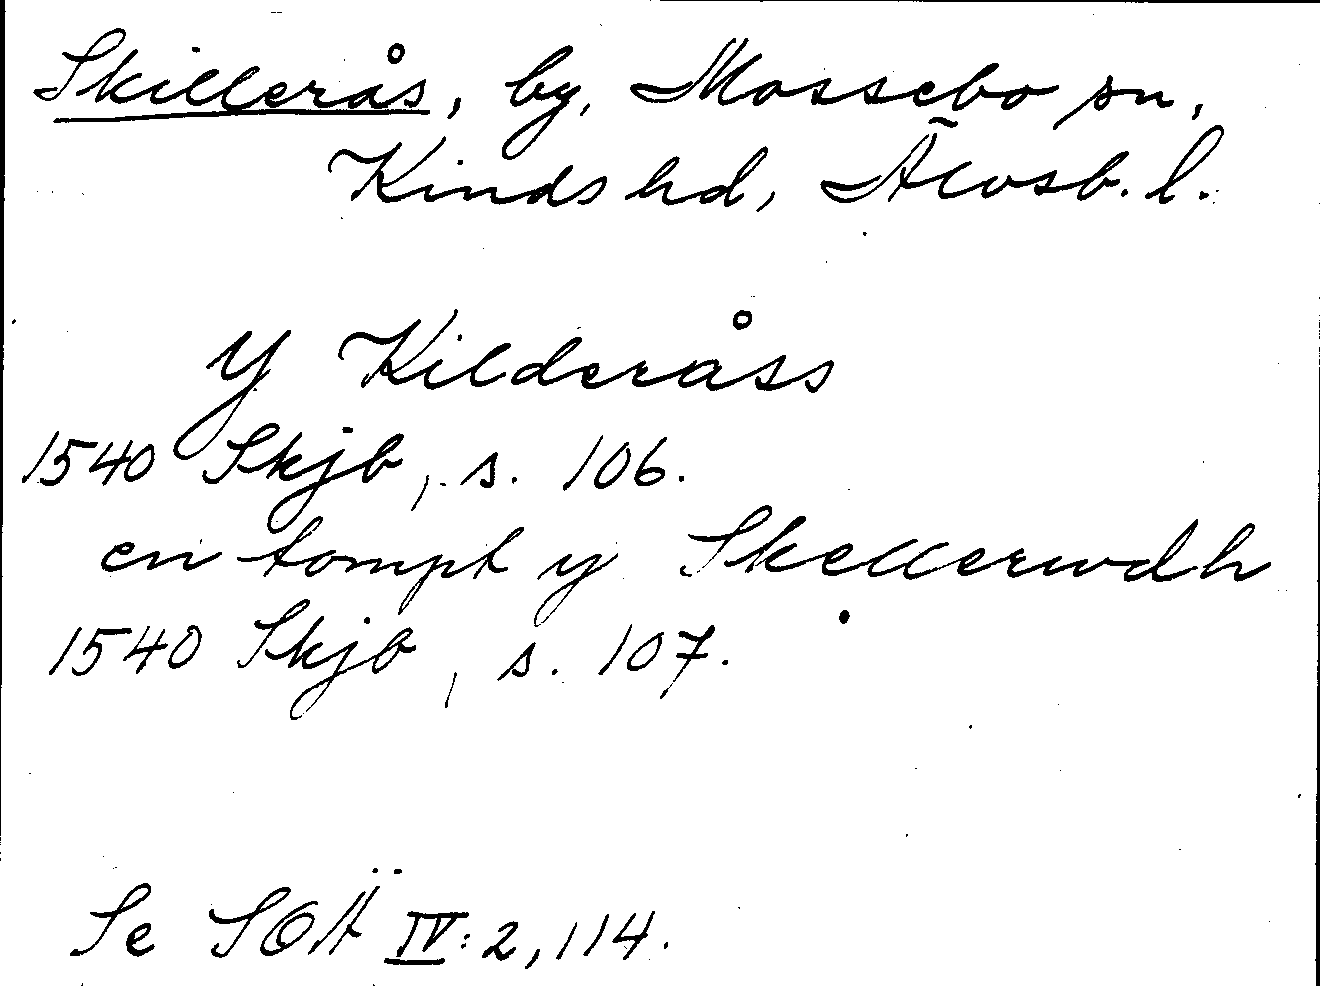 Skillerås, by, Mossebo sn,
Kinds hd, Älvsb. l.
y Kilderåss
1540 Skjb, s. 106.
en tompt y Skellerwdh
1540 Skjb, s. 107.
Se SOÄ IV: 2, 114.